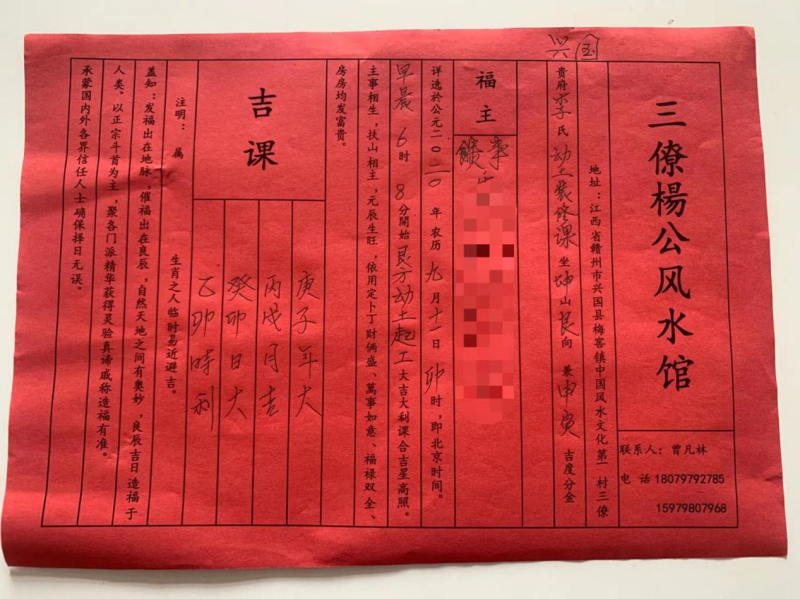 兴国
三僚楊公风水馆
联系人：曾凡林
电 话 18079792785
15979807968
地址：江西省赣州市兴国县梅窖镇中国风水文化第一村三僚
贵府李氏动工装修课坐坤山艮向兼申寅吉度分金
福主
详选於公元二0二0年农历九月十一日卯时，即北京时间。
早晨6时8分開始艮方动土起工大吉大利课合吉星高照。
主事相生，扶山相主，元辰生旺，依用定卜丁财俩盛、萬事如意、福禄双全、
房房均发富贵。
吉课
庚子年大
丙戌月吉
癸卯日大
乙卯時利
注明：属 生肖之人临时易近避吉。
盖知：发福出在地脉，催福出在良辰，自然天地之间有奥妙，良辰吉日造福于
人类。以正宗斗首为主，聚各门派精华获得灵验真谛戚称造福有准。
承蒙国内外各界信任人士确保择日无误。